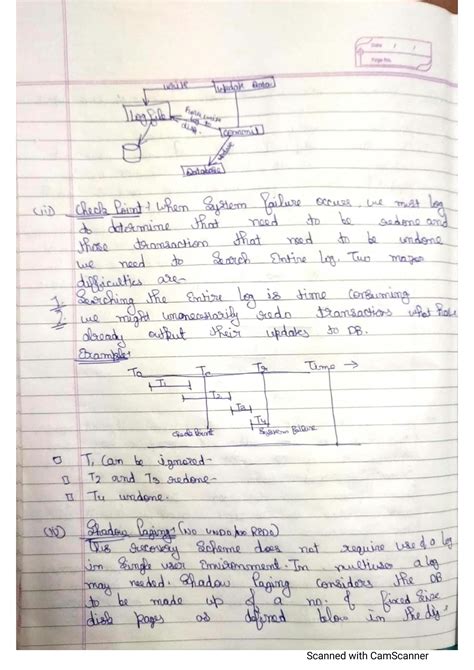 Date / /
Page No.
write
Update Data
Log file
Force write
log to
disk
commit
update
Database
(iii) Check Point :- When System failure occurs, we must log
to determine that need to be redone and
those transaction that need to be undone
we need to Search Entire log. Two major
difficulties are-
1. Searching the Entire log is time consuming
2. we might unnecessarily redo transactions that have
already output their updates to DB.
Example:-
Tc Tf Time →
T1
T2
T3
T4
CheckPoint System failure
T1 Can be ignored-
T2 and T3 redone-
T4 undone.
(iv) Shadow Paging:- (NO UNDO/NO REDO)
This recovery Scheme does not require use of a log
in Single user Environment. In multiuser a log
may needed. Shadow Paging considers the DB
to be made up of a no. of fixed Size
disk pages as defined below in the dig
Scanned with CamScanner